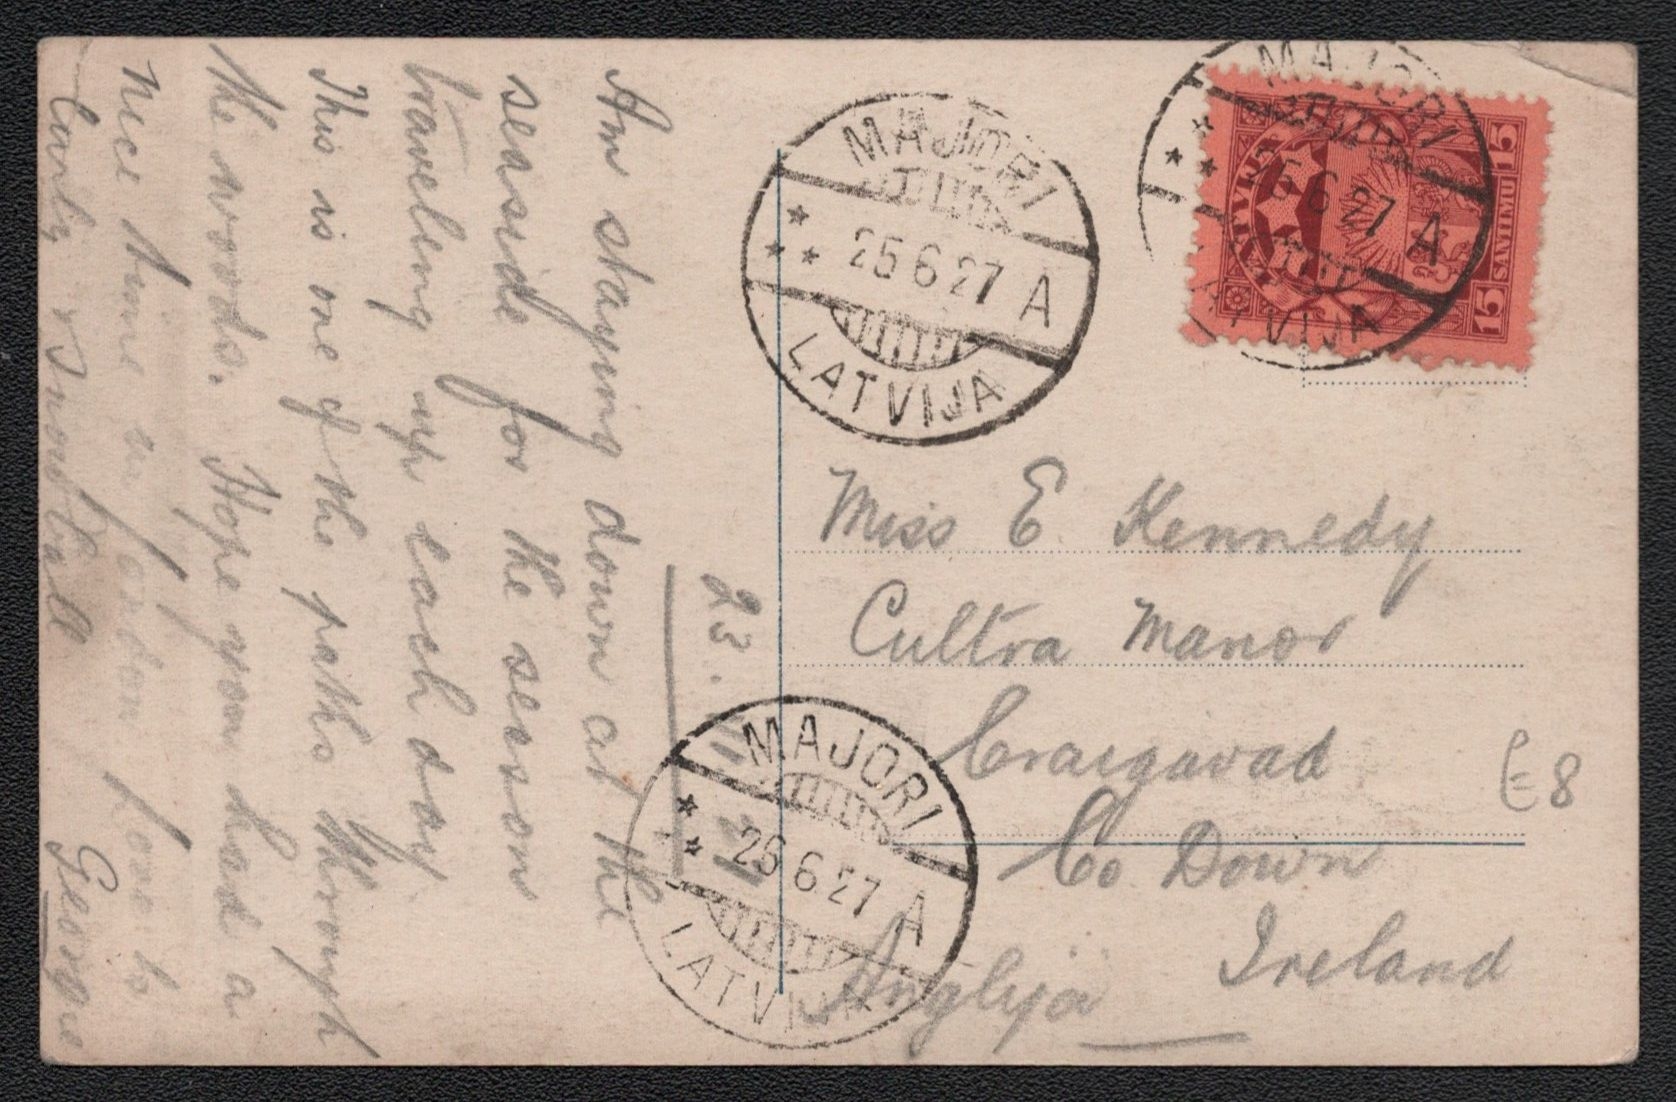 Am staying down at the
seaside for the season
traveling up each day
This is one of the paths through
the woods. Hope you had a
nice time in London love to
Curly & Snowball
George
23.
MAJORI
25 6 27 A
LATVIJA
MAJORI
25 6 27 A
LATVIJA
MAJORI
25 6 27 A
LATVIJA
LATVIJA
15 SANTIMU 15
Miss E Kennedy
Cultra Manor
Craigavad
Co Down
Ireland
Anglija
E8